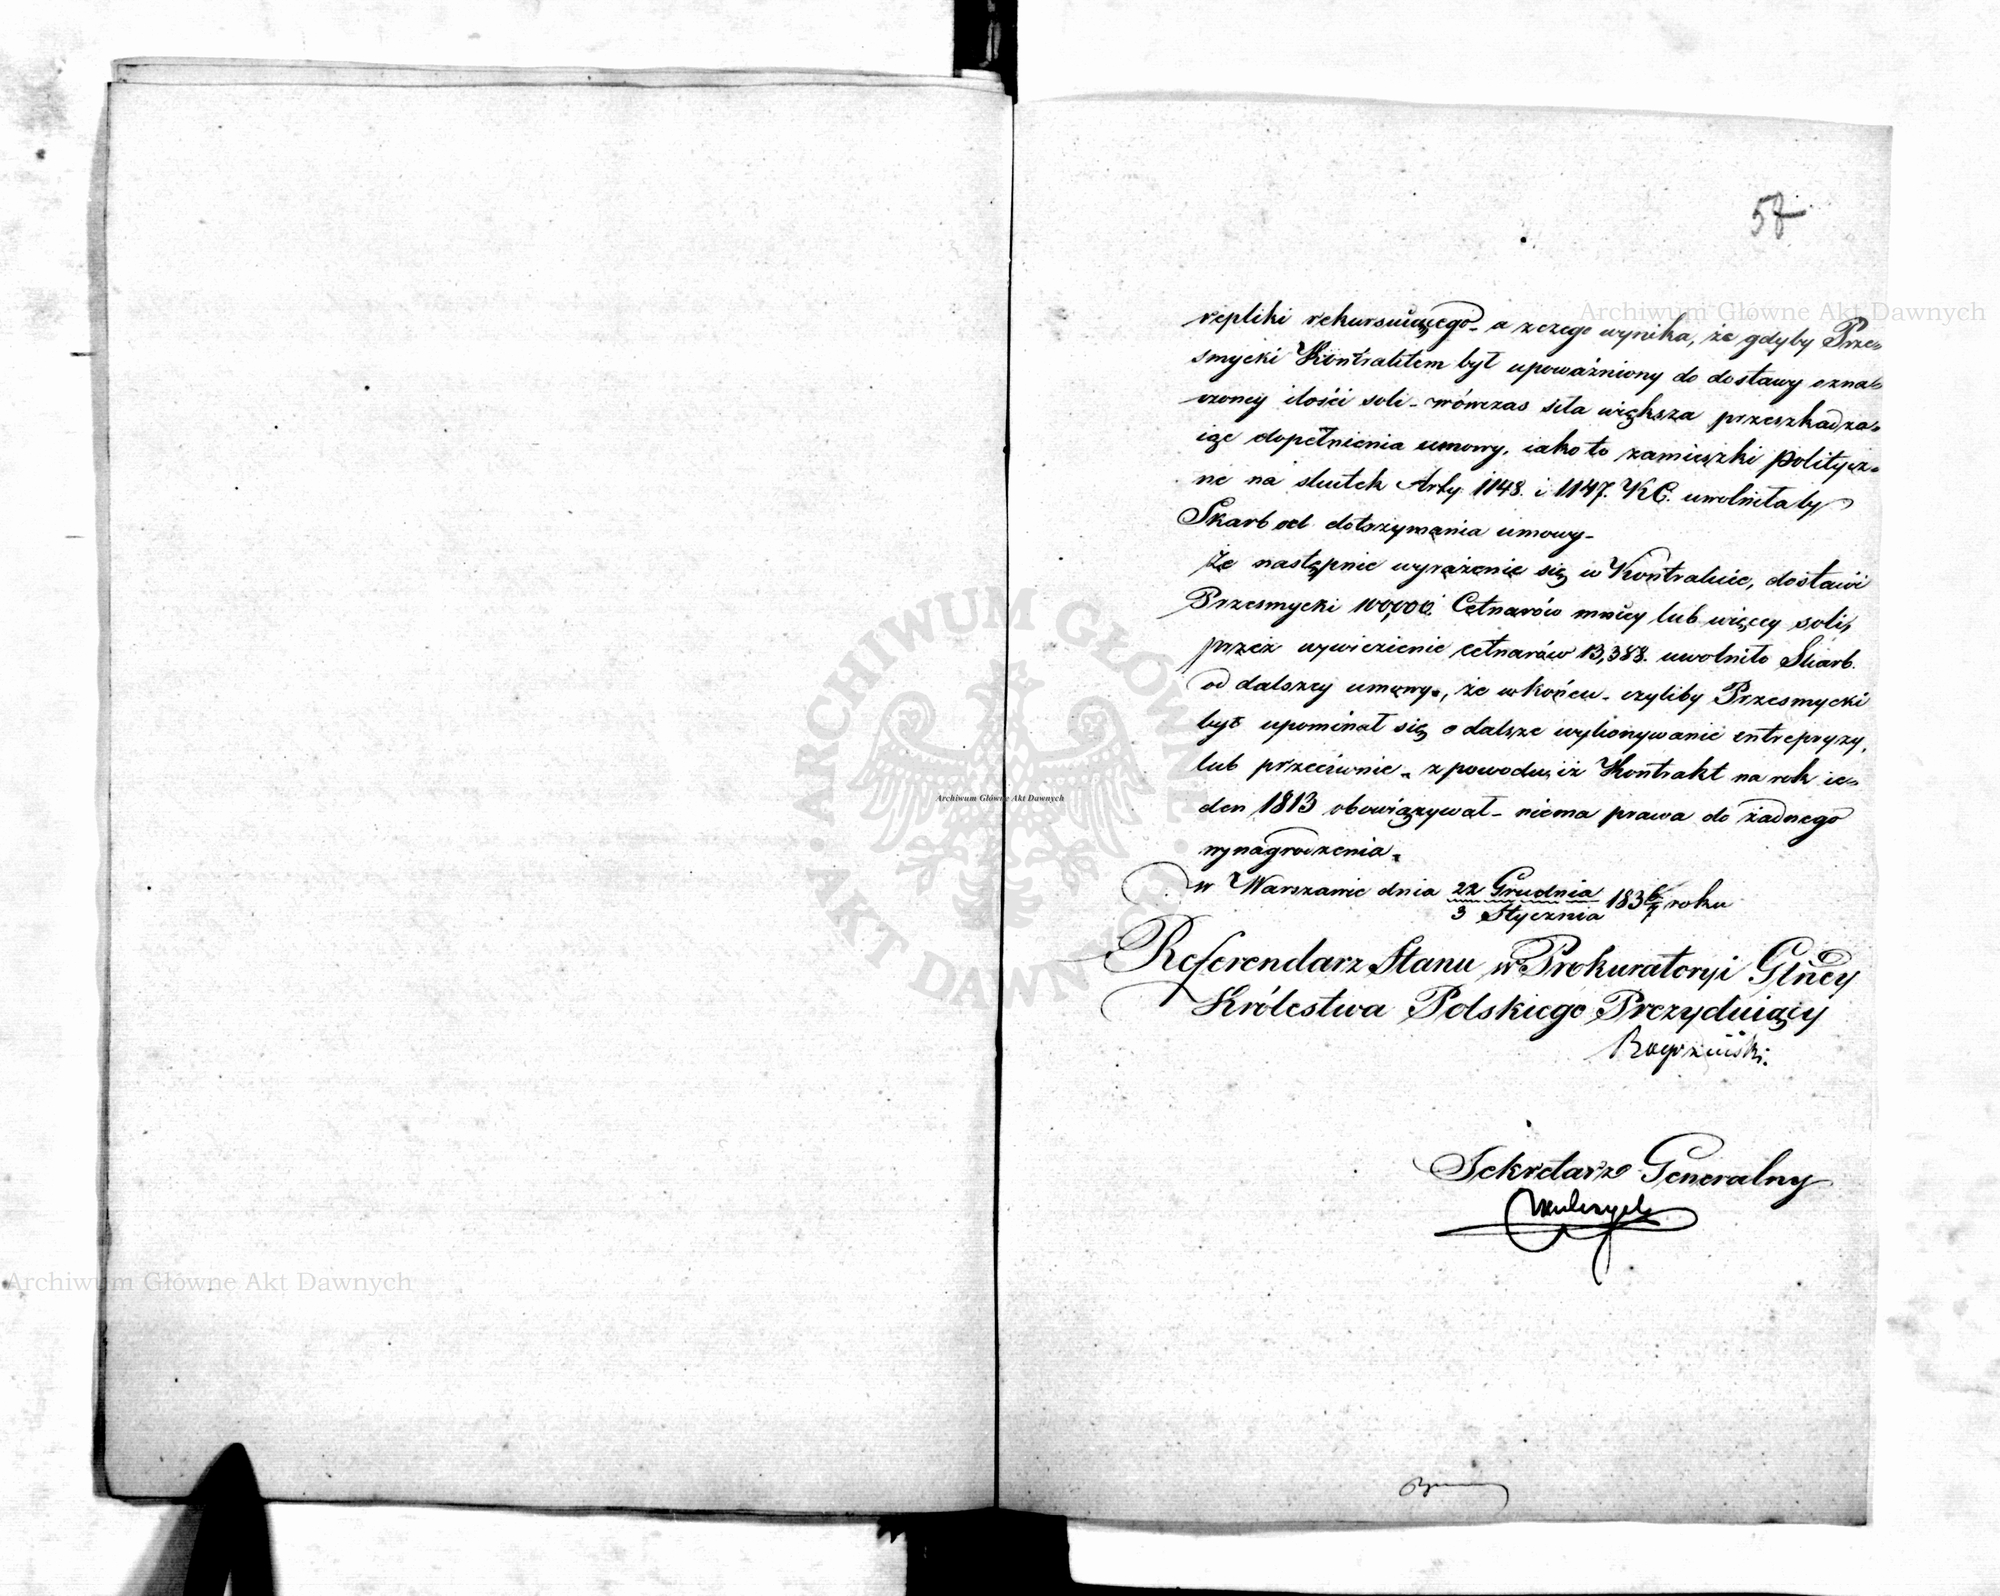 57
repliki rekursuiącego_ a z czego wynika, że gdyby Prze=
smycki Kontraktem był upoważniony do dostawy ozna=
czoney ilości soli_ wówczas siła większa przeszkadza=
iąc dopełnienia umowy, iako to zamieszki polityez=
ne na skutek Arty 1148. i 1147. KC. uwolniłaby
Skarb od dotrzymania umowy_
Że następnie wyrażenie się w Kontrakcie, dostawi
Przesmycki 100,000 Cetnarów mniey lub więcey soli,
przez wywiezienie cetnarów 13,388. uwolniło Skarb
od dalszey umowy, że w końcu_ czyliby Przesmycki
był upominał się o dalsze wykonywanie entrepryzy,
lub przeciwnie_ z powodu, iż Kontrakt na rok ie=
den 1813 obowiązywał_ niema prawa do żadnego
wynagrodzenia_
w Warszawie dnia 22 Grudnia / 3 Stycznia 1836/7 roku
Referendarz Stanu w Prokuratoryi Głney
Królestwa Polskiego Prezyduiący
Sekretarz Generalny
Archiwum Główne Akt Dawnych
Archiwum Główne Akt Dawnych
Archiwum Główne Akt Dawnych
ARCHIWUM GŁÓWNE AKT DAWNYCH